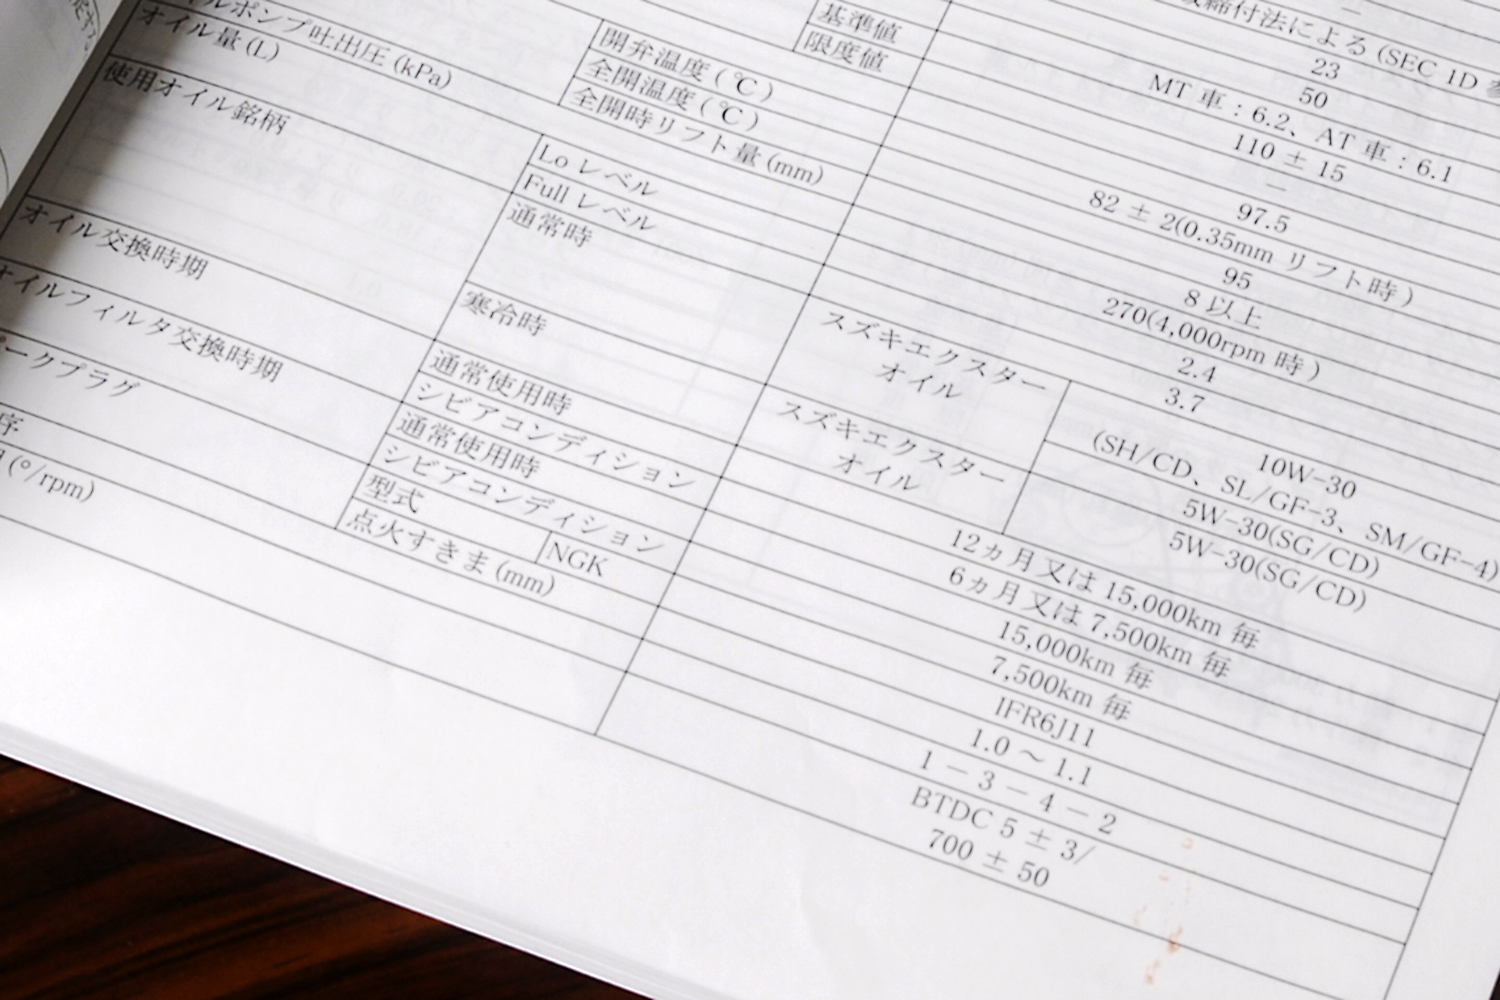 基準値
限度値
締付法による (SEC 1D
23
50
MT 車 : 6.2、AT 車 : 6.1
110 ± 15
—
開弁温度 (℃)
全開温度 (℃)
全開時リフト量 (mm)
97.5
82 ± 2(0.35mm リフト時)
95
8 以上
ルポンプ吐出圧 (kPa)
270(4,000rpm 時)
オイル量 (L)
Lo レベル
Full レベル
2.4
3.7
使用オイル銘柄
通常時
スズキエクスター
オイル
10W-30
(SH/CD、SL/GF-3、SM/GF-4)
5W-30(SG/CD)
寒冷時
スズキエクスター
オイル
5W-30(SG/CD)
オイル交換時期
通常使用時
12ヵ月又は 15,000km 毎
シビアコンディション
6ヵ月又は 7,500km 毎
オイルフィルタ交換時期
通常使用時
15,000km 毎
シビアコンディション
7,500km 毎
ークプラグ
型式
NGK
IFR6J11
点火すきま (mm)
1.0 ～ 1.1
序
1 − 3 − 4 − 2
(°/rpm)
BTDC 5 ± 3/
700 ± 50